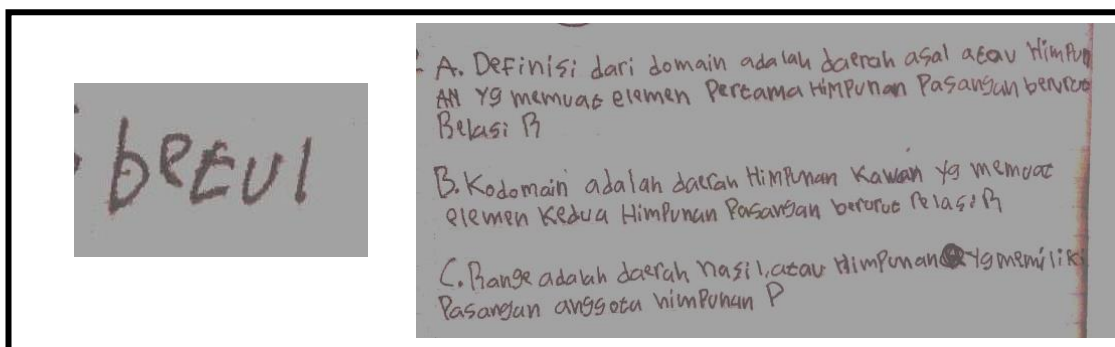 betul
A. Definisi dari domain adalah daerah asal atau Himpun
an yg memuat elemen Pertama Himpunan Pasangan berurut
Relasi R
B. Kodomain adalah daerah Himpunan Kawan yg memuat
elemen Kedua Himpunan Pasangan berurut relasi R
C. Range adalah daerah hasil, atau Himpunan yg memiliki
Pasangan anggota himpunan P